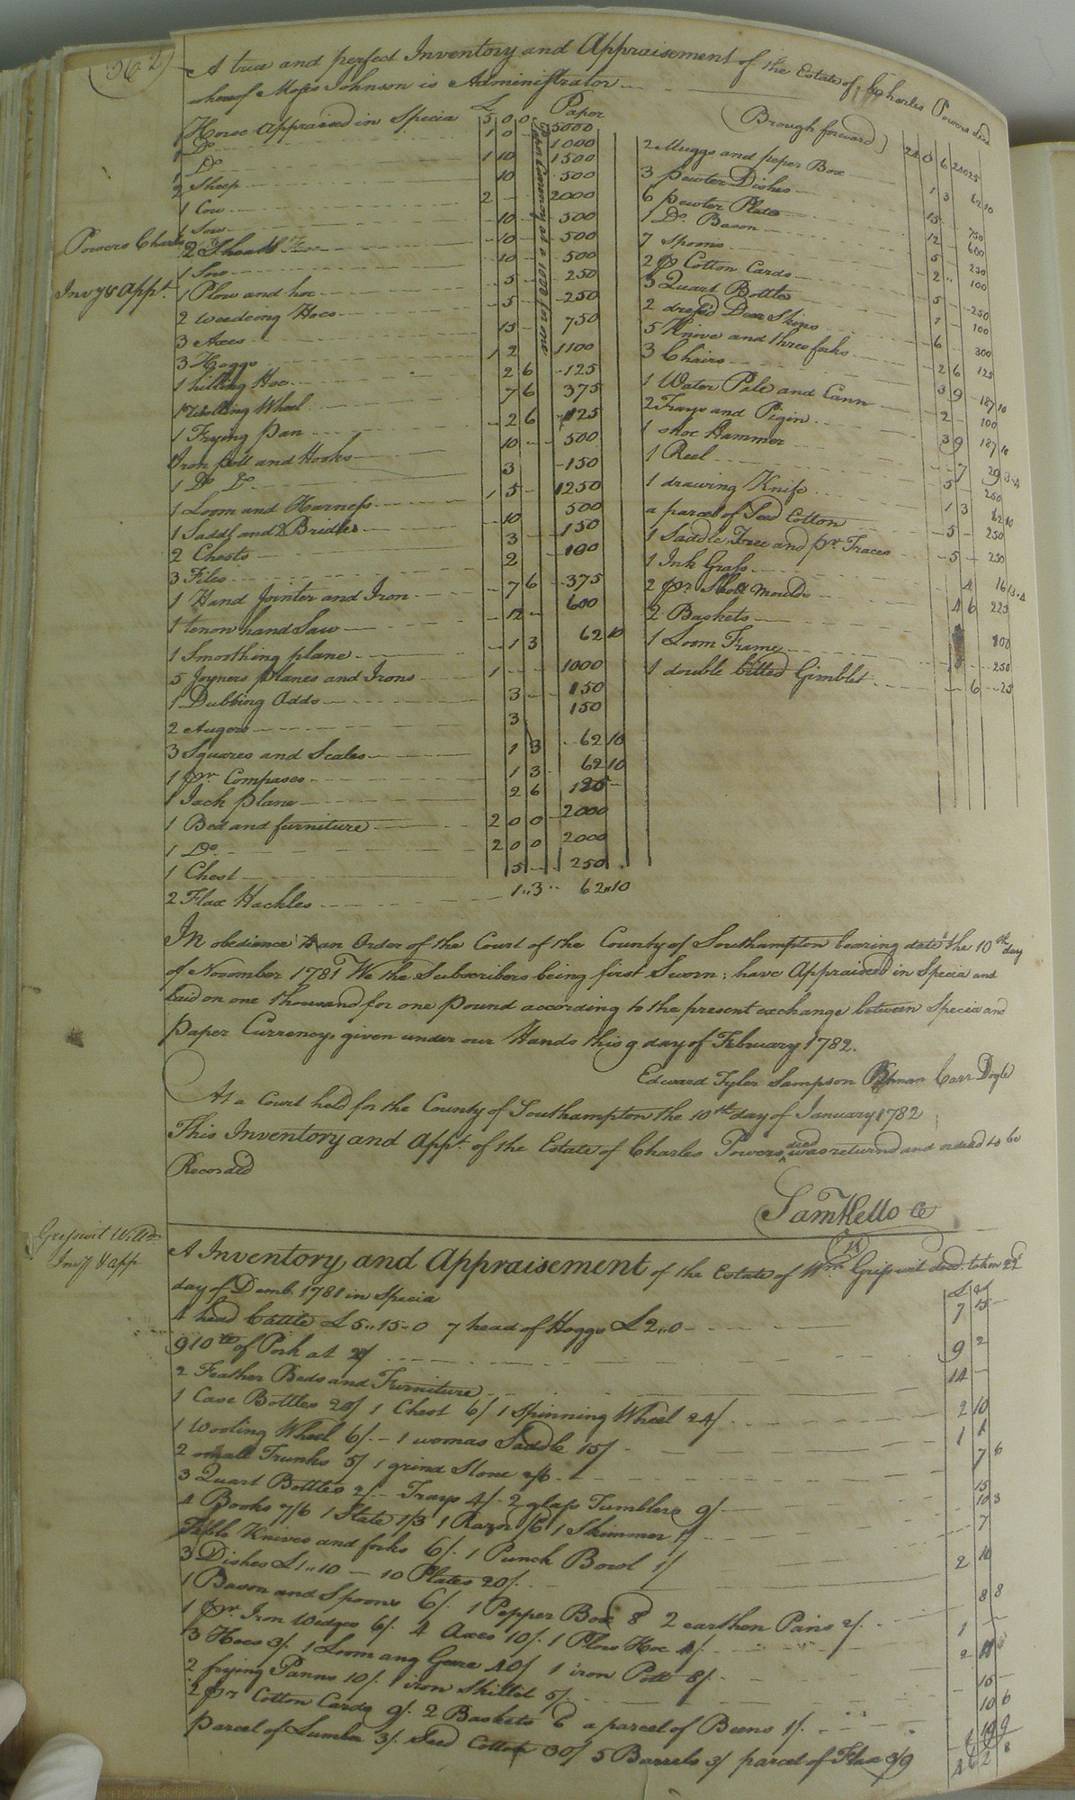 (362)
A true and perfect Inventory and Appraisement of the Estate of Charles Powers decd
whereof Moses Johnson is Administrator
£ Paper
1 Horse Appraised in Specia 5 0 0 5000
1 Do 1 0 - 1000
1 Do 1 10 1500
2 Sheep 10 500
1 Cow 2 - 2000
1 Sow 10 500
Powers Charles
2 Shoats 10 - 500
1 Sow 10 500
Invy & Appt.
1 Plow and hoe 5 250
2 weedeing Hoes 5 250
3 Axes 15 750
3 Hoggs 1 2 1100
1 hilling Hoe 2 6 125
1 Wolling Wheel 7 6 375
1 Frying pan 2 6 125
Iron pott and Hooks 10 500
1 Do Do 3 150
1 Loom and Harness 1 5 - 1250
1 Saddle and 2 Bridles 10 500
2 Chests 3 150
3 Files 2 100
1 Hand Jointer and Iron 7 6 375
1 tenon hand Saw 12 600
1 Smoothing plane 1 3 62 10
5 Joyners planes and Irons 1 1000
1 Dubbing Adds 3 150
2 Augers 3 150
3 Squares and Scales 1 3 62 10
1 pr. Compases 1 3 62 10
1 Jack plane 2 6 125
1 Bed and furniture 2 0 0 2000
1 Do. 2 0 0 2000
1 Chest 5 250
2 Flax Hackles 1 3 62 10
(Brough forward)
2 Muggs and peper Box 1 3 62 10
3 pewter Dishes 15 750
6 pewter Plates 12 600
1 Do. Bason 5 250
7 Spoons 2 100
2 pr Cotton Cards 5 250
3 Quart Bottles 100
2 dressed Deer Skins 6 300
5 Knive and three forks 2 6 125
3 Chairs 3 9 187 10
1 Water Pale and Cann 2 100
2 Trays and Pigin 3 9 187 10
1 shoe Hammer 7 29
1 Reel 5 250
1 drawing Knife 1 3 62 10
a parcel of Seed Cotton 5 250
1 Saddle Tree and pr. Traces 5 250
1 Ink Glass 4
2 pr. Shott Moulds 4 6 225
2 Baskets 100
1 Loom Frame 250
1 double bitted Gimblet 6 25
IN obedience to an Order of the Court of the County of Southampton bearing date the 10th day
of November 1781 We the Subscribers being first Sworn; have Appraised in Specia and
Laid on one thousand for one pound according to the present exchange between Specia and
paper Currency, given under our Hands this 9 day of February 1782.
Edward Tyler Sampson Pitman Carr Doyle
At a Court held for the County of Southampton the 10th day of January 1782
This Inventory and Appt. of the Estate of Charles Powers decd was returnd and orderd to be
Recorded
Sam Kello Cl
Gresswit Willm
Invy & app
A Inventory and Appraisement of the Estate of Wm. Gresswit decd. taken 22d
day of Decemb. 1781 in Specia
4 head Cattle £5..15-0 7 head of Hoggs £2..0 7 15
910 lb of Pork at 9 2
2 Feather Beds and Furniture 14
1 Case Bottles 20/ 1 Chest 6/ 1 Spinning Wheel 24/ 2 10
1 Wooling Wheel 6/- 1 womas Saddle 15/ 1 1
2 small Trunks 5/ 1 grind Stone 2/6 7 6
3 Quart Bottles 2/- Trays 4/- 2 glass Tumblers 9/ 15
4 Books 7/6 1 Slate 1/3 1 Razor /6 1 Skimmer 1/ 10 3
Table Knives and forks 6/. 1 Punch Bowl 1/ 7
3 Dishes £1..10 - 10 Plates 20/. 2 10
1 Bason and Spoons 6/. 1 Pepper Box 8 2 earthen Pans 2/. 8 8
1 pr. Iron Widges 6/. 4 Axes 10/. 1 Plow Hoe 4/. 1
3 Hoes 3/. 1 Loom ang Geare 40/ 1 iron Pott 8/. 2 11
2 frying Panns 10/. iron Skillet 5/ 15
2 pr Cotton Cards 9/. 2 Baskets 6 a parcel of Beens 1/. 10 6
Parcel of Lumber 3/. Seed Cotton 30/ 5 Barrels 3/ parcel of Flax 3/9 19 9